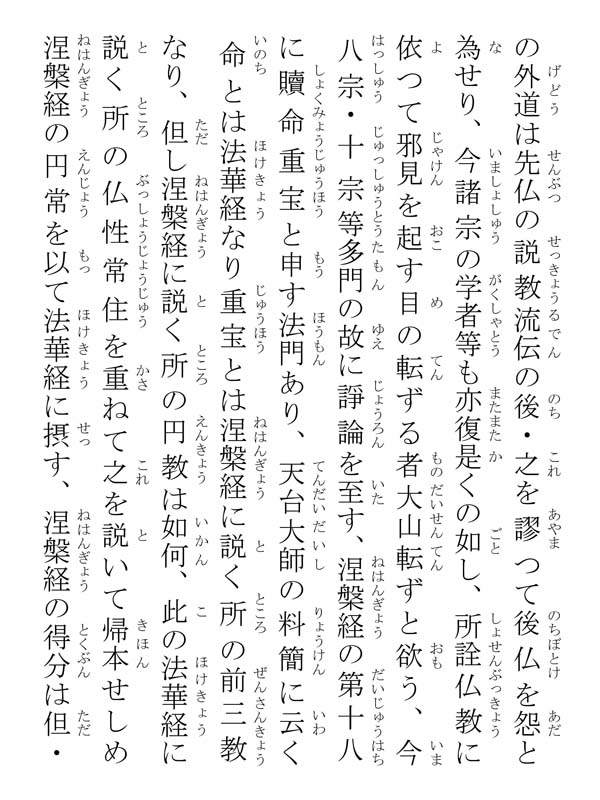 の外道は先仏の説教流伝の後・之を謬つて後仏を怨と
為せり、今諸宗の学者等も亦復是くの如し、所詮仏教に
依つて邪見を起す目の転ずる者大山転ずと欲う、今
八宗・十宗等多門の故に諍論を至す、涅槃経の第十八
に贖命重宝と申す法門あり、天台大師の料簡に云く
命とは法華経なり重宝とは涅槃経に説く所の前三教
なり、但し涅槃経に説く所の円教は如何、此の法華経に
説く所の仏性常住を重ねて之を説いて帰本せしめ
涅槃経の円常を以て法華経に摂す、涅槃経の得分は但・